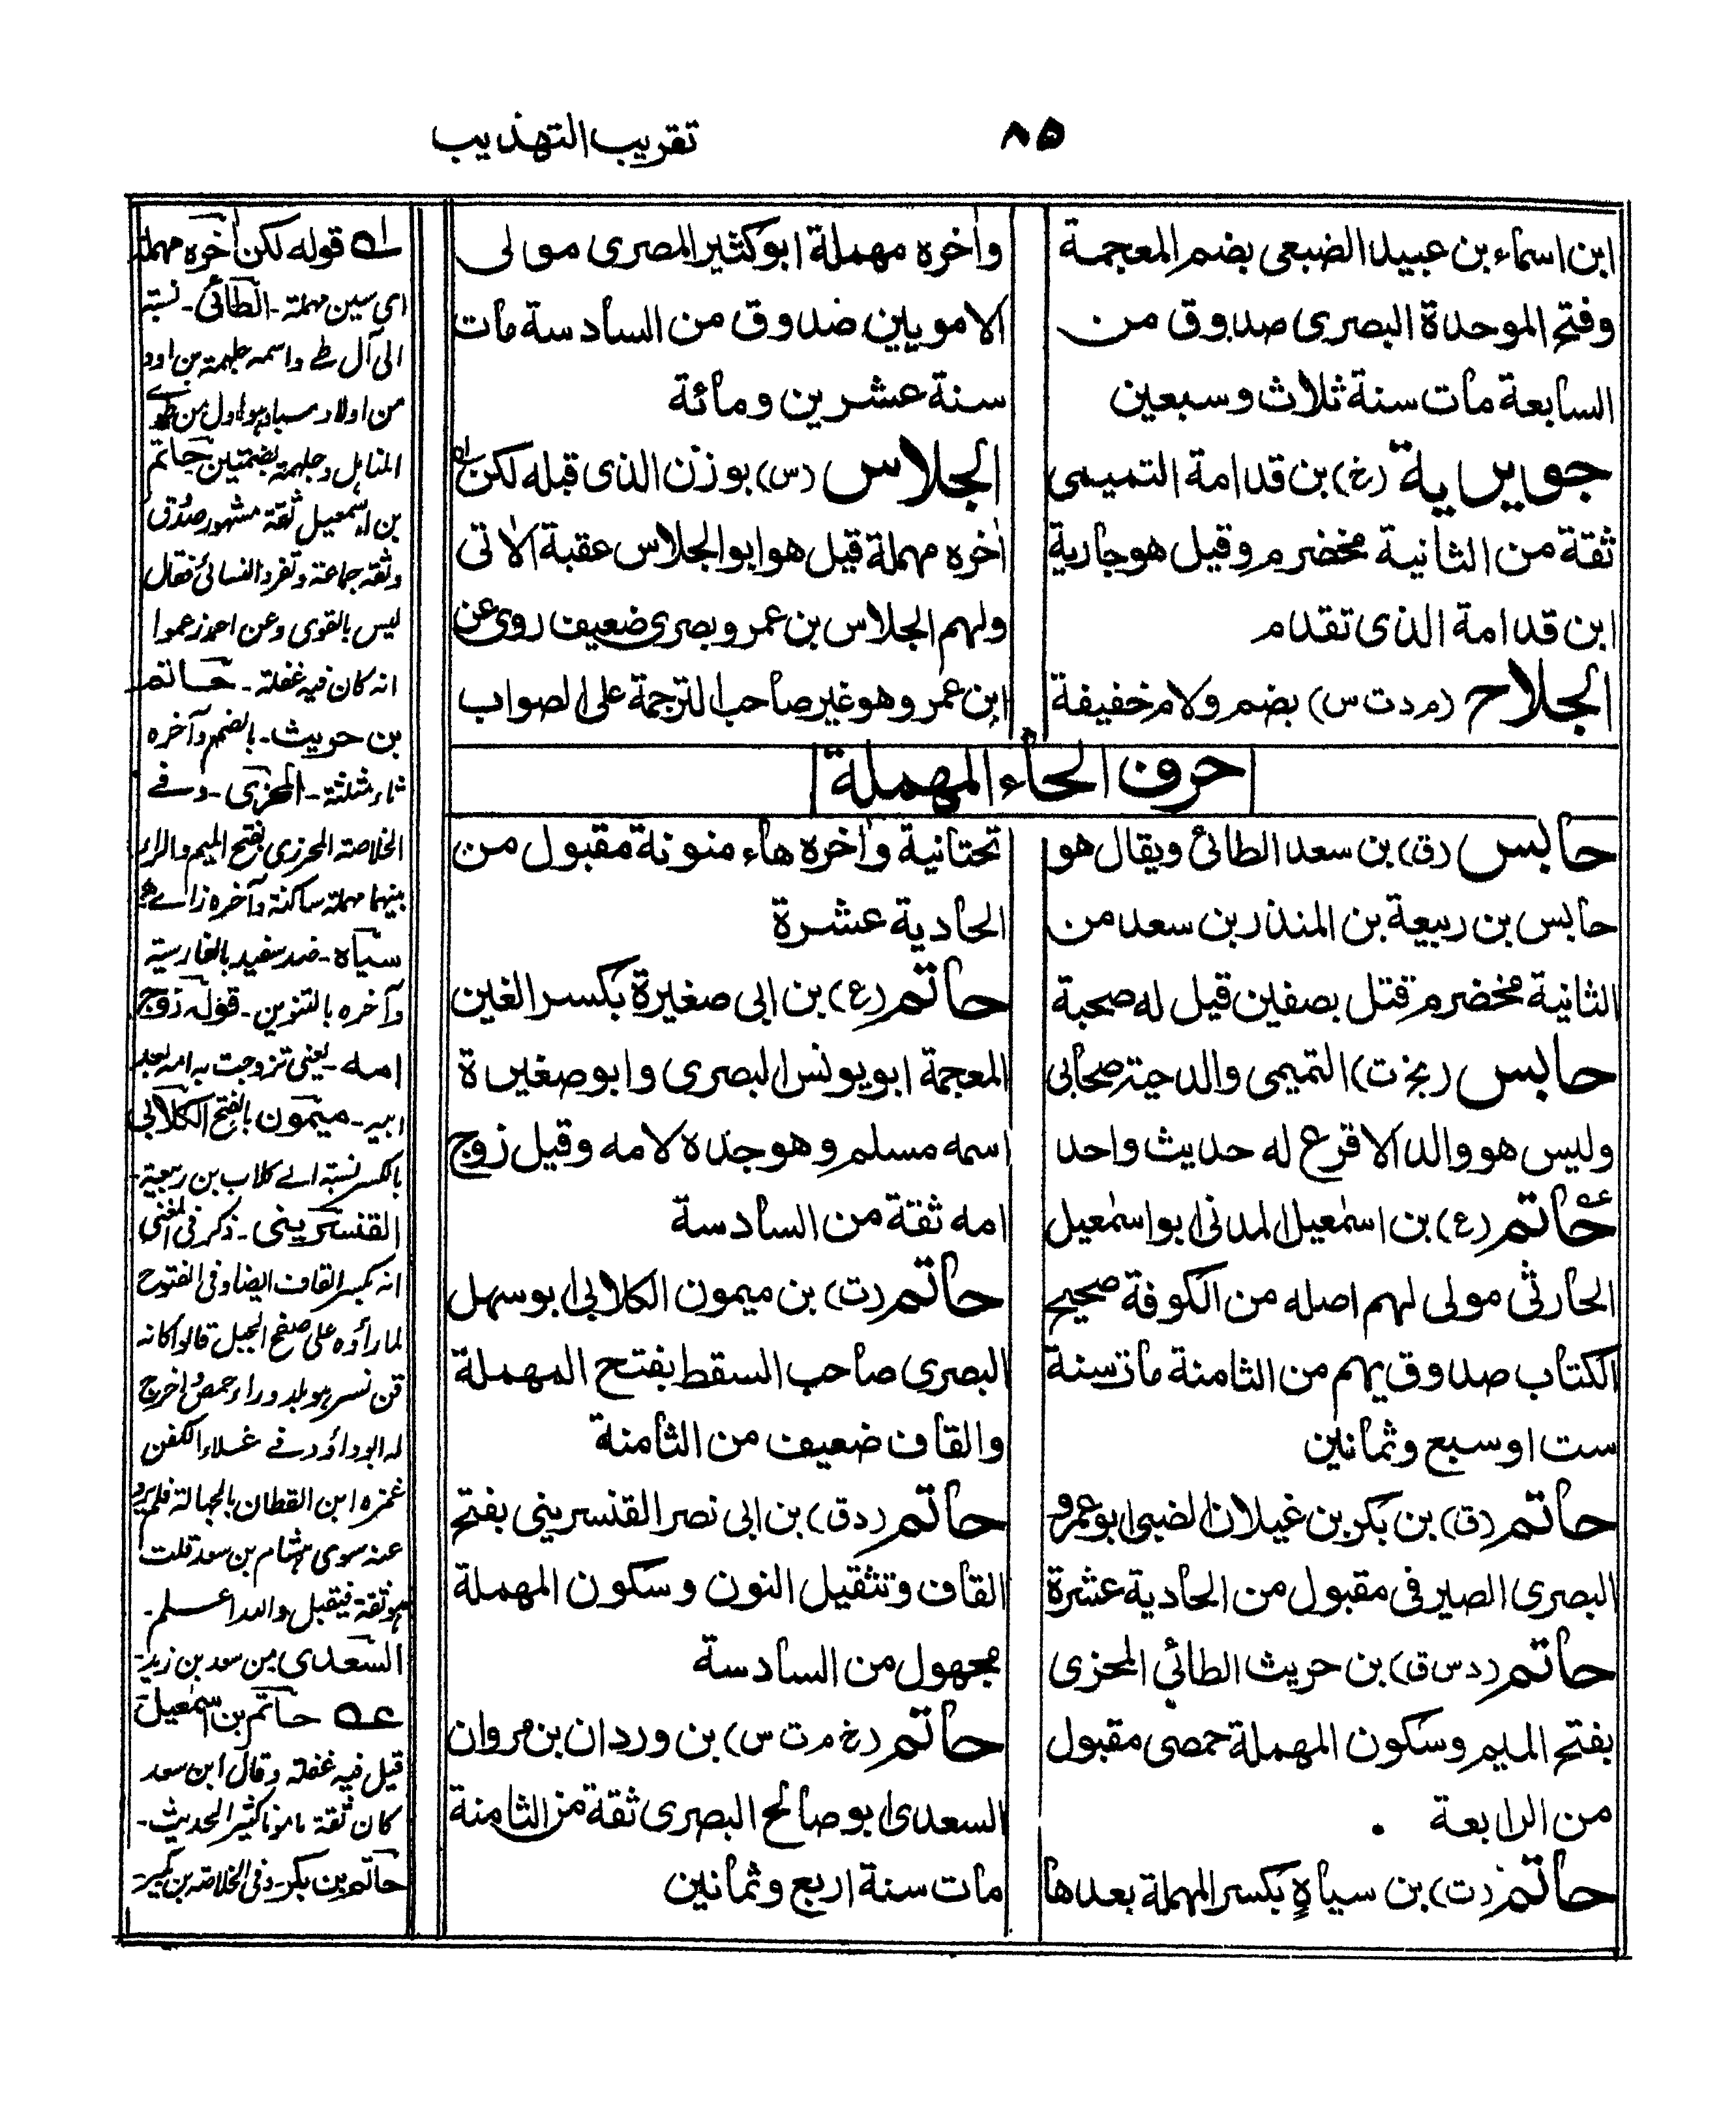 ٨٥
تقريب التهذيب
ابن اسماء بن عبيد الضبعى بضم المعجمة
وفتح الموحدة البصرى صدوق من
السابعة مات سنة ثلاث وسبعين
جويرية (خ) بن قدامة التميمى
ثقة من الثانية مخضرم وقيل هو جارية
ابن قدامة الذى تقدم
الجلاح (م د ت س) بضم ولام خفيفة
واٰخره مهملة ابو كثير المصرى مولى
الامويين صدوق من السادسة مات
سنة عشرين ومائة
الجلاس (س) بوزن الذى قبله لكن
اٰخره مهملة قيل هو ابو الجلاس عقبة الاٰتى
ولهم الجلاس بن عمرو بصرى ضعيف روى عن
ابن عمر وهو غير صاحب الترجمة على الصواب
حرف الحاء المهملة
حابس (ق) بن سعد الطائى ويقال هو
حابس بن ربيعة بن المنذر بن سعد من
الثانية مخضرم قتل بصفين قيل له صحبة
حابس (بخ ت) التميمى والد حية صحابى
وليس هو والد الاقرع له حديث واحد
حاتم (ع) بن اسمٰعيل المدنى ابو اسمٰعيل
الحارثى مولى لهم اصله من الكوفة صحيح
الكتاب صدوق يهم من الثامنة مات سنة
ست او سبع وثمانين
حاتم (ق) بن بكر بن غيلان الضبى ابو عمرو
البصرى الصيرفى مقبول من الحادية عشرة
حاتم (د س ق) بن حريث الطائي المحزى
بفتح الميم وسكون المهملة حمصى مقبول
من الرابعة
حاتم (ت) بن سياهٍ بكسر المهملة بعدها
تحتانية واٰخره هاء منونة مقبول من
الحادية عشرة
حاتم (ع) بن ابى صغيرة بكسر الغين
المعجمة ابو يونس البصرى وابو صغيرة
اسمه مسلم وهو جده لامه وقيل زوج
امه ثقة من السادسة
حاتم (ت) بن ميمون الكلابى ابو سهل
البصرى صاحب السقط بفتح المهملة
والقاف ضعيف من الثامنة
حاتم (د ق) بن ابى نصر القنسريني بفتح
القاف وتثقيل النون وسكون المهملة
مجهول من السادسة
حاتم (خ م ت س) بن وردان بن مروان
السعدى ابو صالح البصرى ثقة من الثامنة
مات سنة اربع وثمانين
له قوله لكن اٰخره مهملة
اى سين مهملة - الطائى - نسبة
الى آل طے واسمه جلهمة بن اود
من اولاد سبا وهو اول من طوے
المناهل وجلهمة بضمتين حاتم
بن اسمعيل ثقة مشهور صدوق
وثقه جماعة وتفرد النسائى فقال
ليس بالقوى وعن احمد زعموا
انه كان فيه غفلة - حاتم
بن حريث - بالضم وآخره
ثاء مثلثة - المحزى - وفے
الخلاصة المحرزى بفتح الميم والراء
بينهما مهملة ساكنة وآخره زاے
سياه - ضد سفيد بالفارسية
وآخره بالتنوين - قوله زوج
امه - يعنى تزوجت به امه بعد
ابيه - ميمون بالفتح الكلابى
بالكسر نسبة الے كلاب بن ربيعة -
القنسرينى - ذكر فى المغنى
انه بكسر القاف ايضا وفى الفتوح
لما رأوه على صفح الجبل قالوا كانه
قن نسر هو بلد وراء حمص اخرج
له ابو داؤد فے غسلاء الكفن
غمزه ابن القطان بالجهالة فلم يرو
عنه سوى هشام بن سعد قلت
هو ثقة فيقبل والله اعلم -
السعدى من سعد بن زيد -
عه حاتم بن اسمٰعيل
قيل فيه غفلة وقال ابن سعد
كان ثقة مامونا كثير الحديث -
حاتم بن بكر - وفى الخلاصة بن بكير -